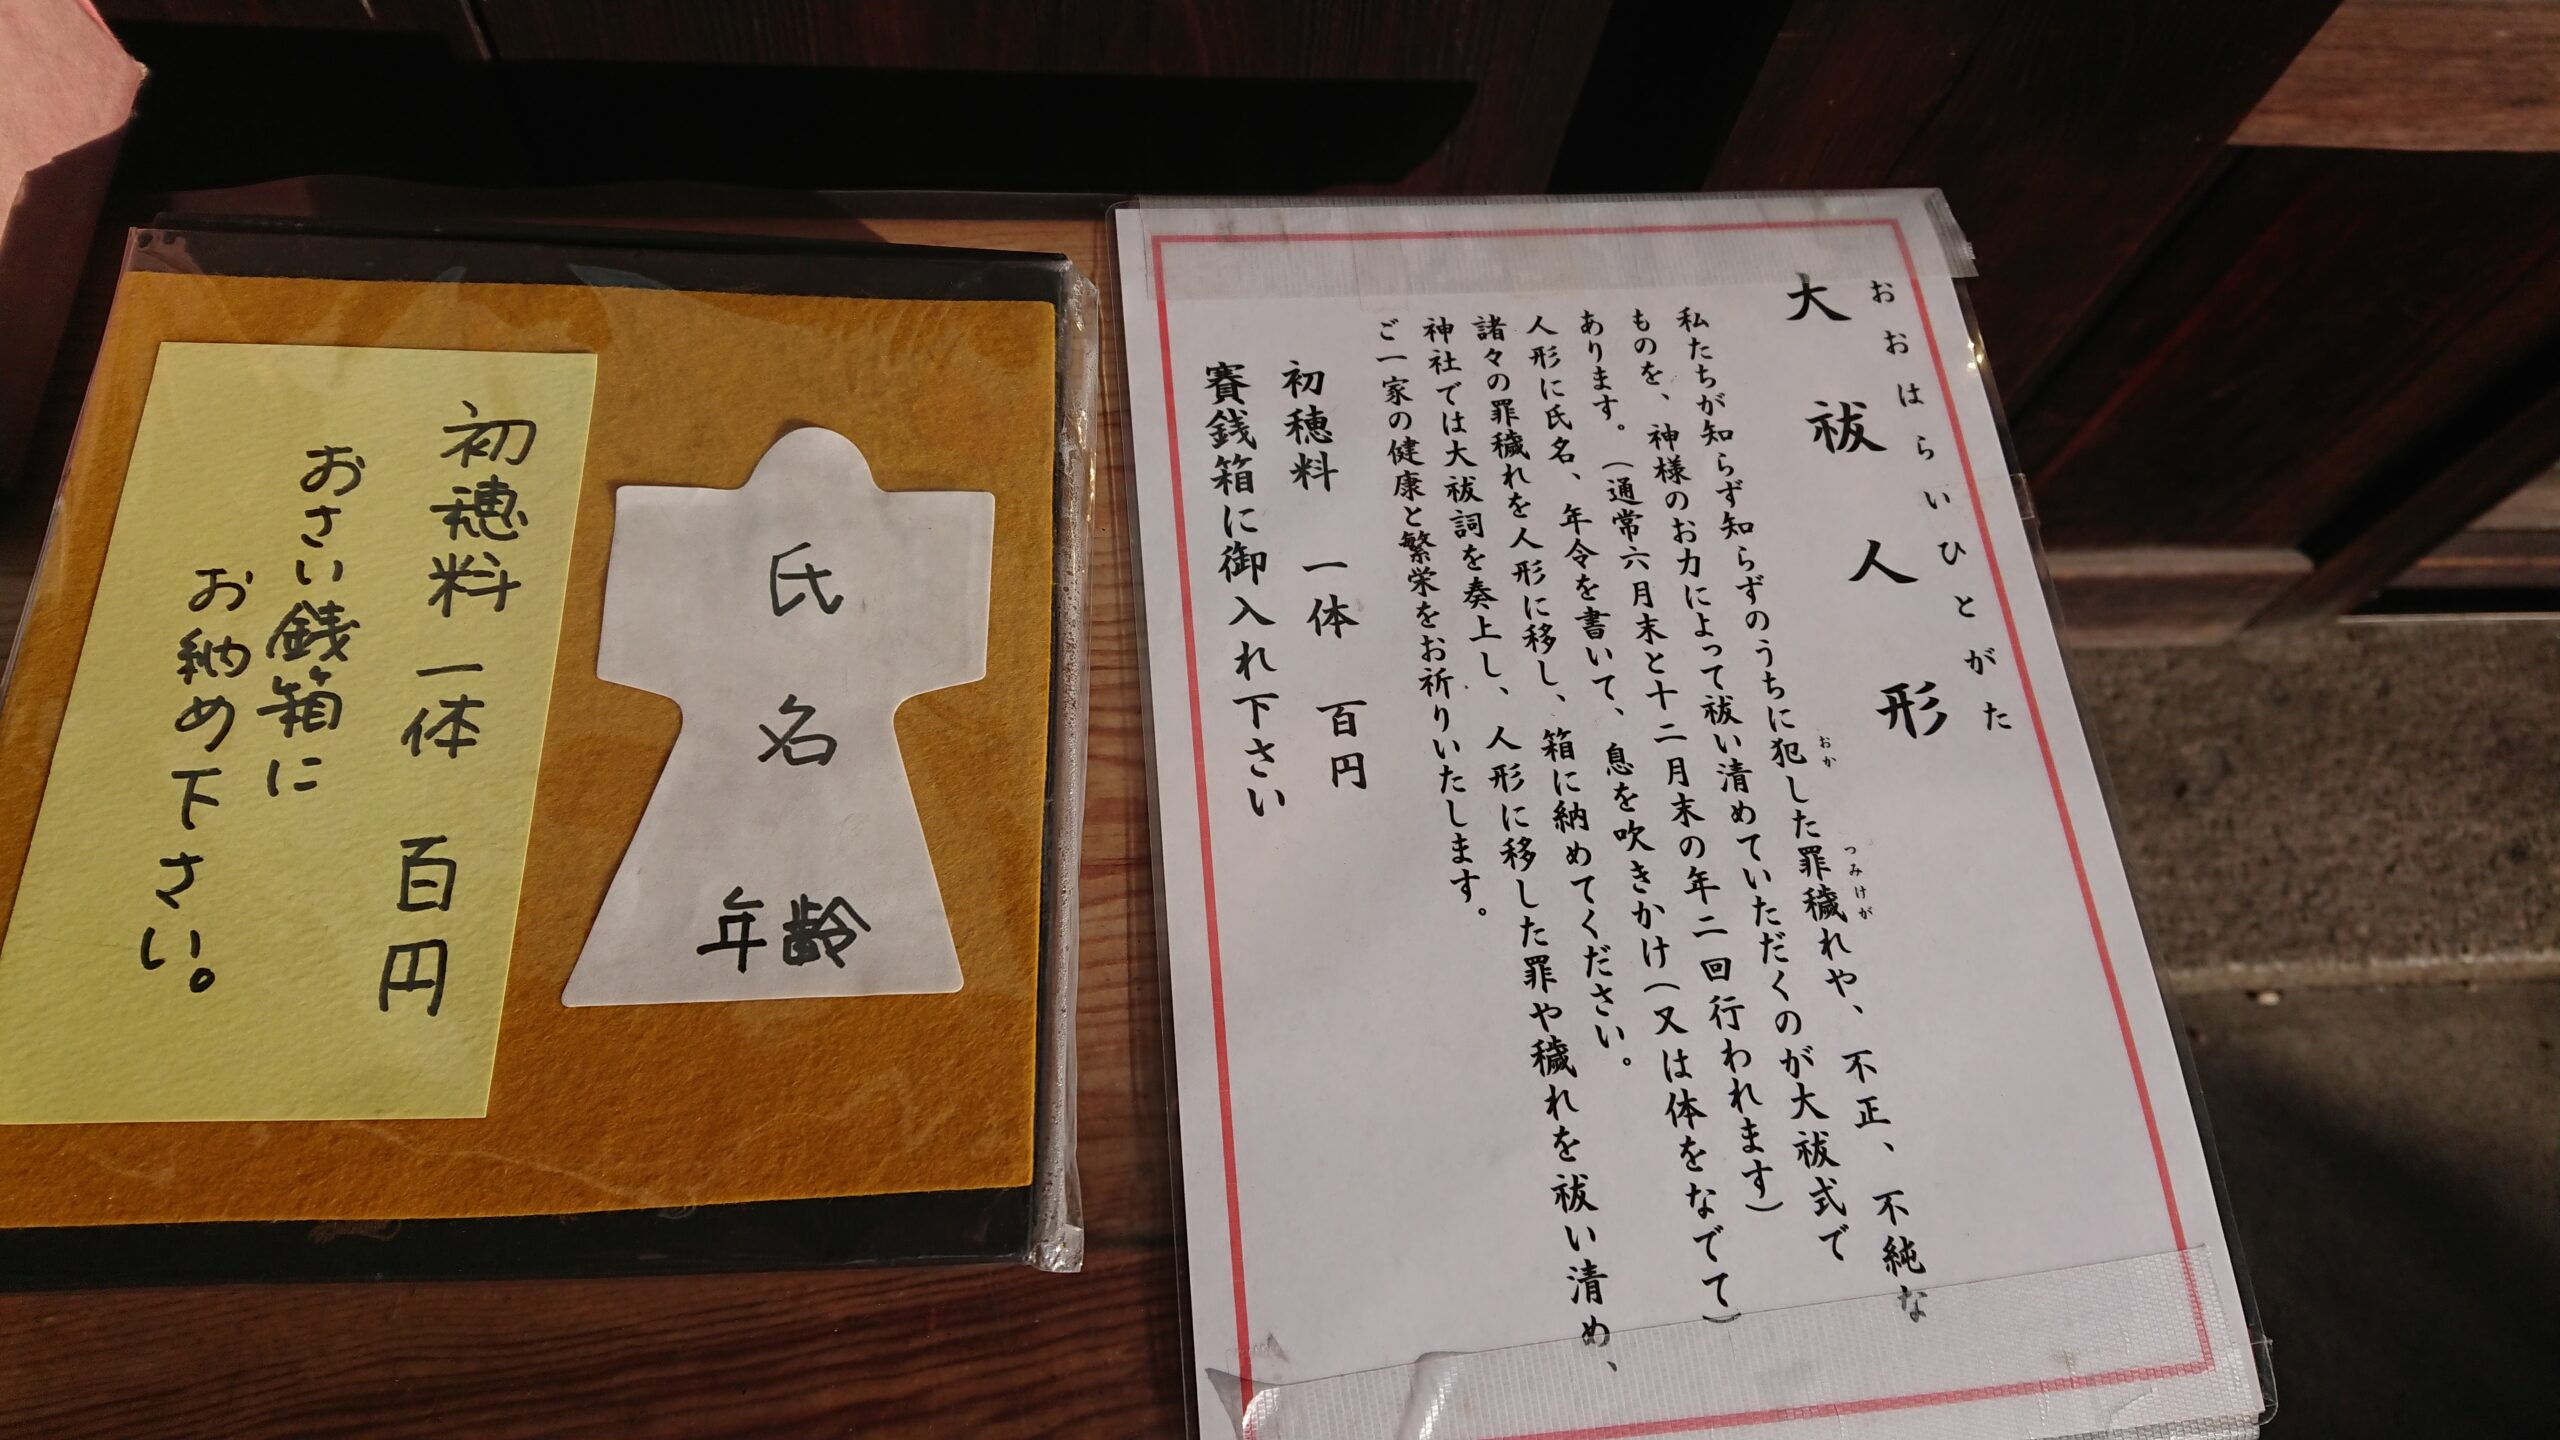 おおはらいひとがた
大祓人形
私たちが知らず知らずのうちに犯した罪穢れや、不正、不純な
おか
つみけが
ものを、神様のお力によって祓い清めていただくのが大祓式で
あります。(通常六月末と十二月末の年二回行われます)
人形に氏名、年令を書いて、息を吹きかけ(又は体をなでて)
諸々の罪穢れを人形に移し、箱に納めてください。
神社では大祓詞を奏上し、人形に移した罪や穢れを祓い清め、
ご一家の健康と繁栄をお祈りいたします。
初穂料 一体 百円
賽銭箱に御入れ下さい
氏名
年齢
初穂料一体 百円
おさい銭箱に
お納め下さい。